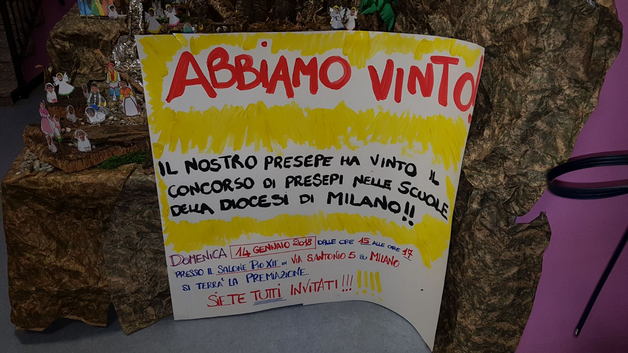 ABBIAMO VINTO!
IL NOSTRO PRESEPE HA VINTO IL
CONCORSO DI PRESEPI NELLE SCUOLE
DELLA DIOCESI DI MILANO!!
DOMENICA 14 GENNAIO 2018 DALLE ORE 15 ALLE ORE 17
PRESSO IL SALONE PIO XII IN VIA S ANTONIO 5 IN MILANO
SI TERRA' LA PREMIAZIONE
SIETE TUTTI INVITATI!!! !!!!